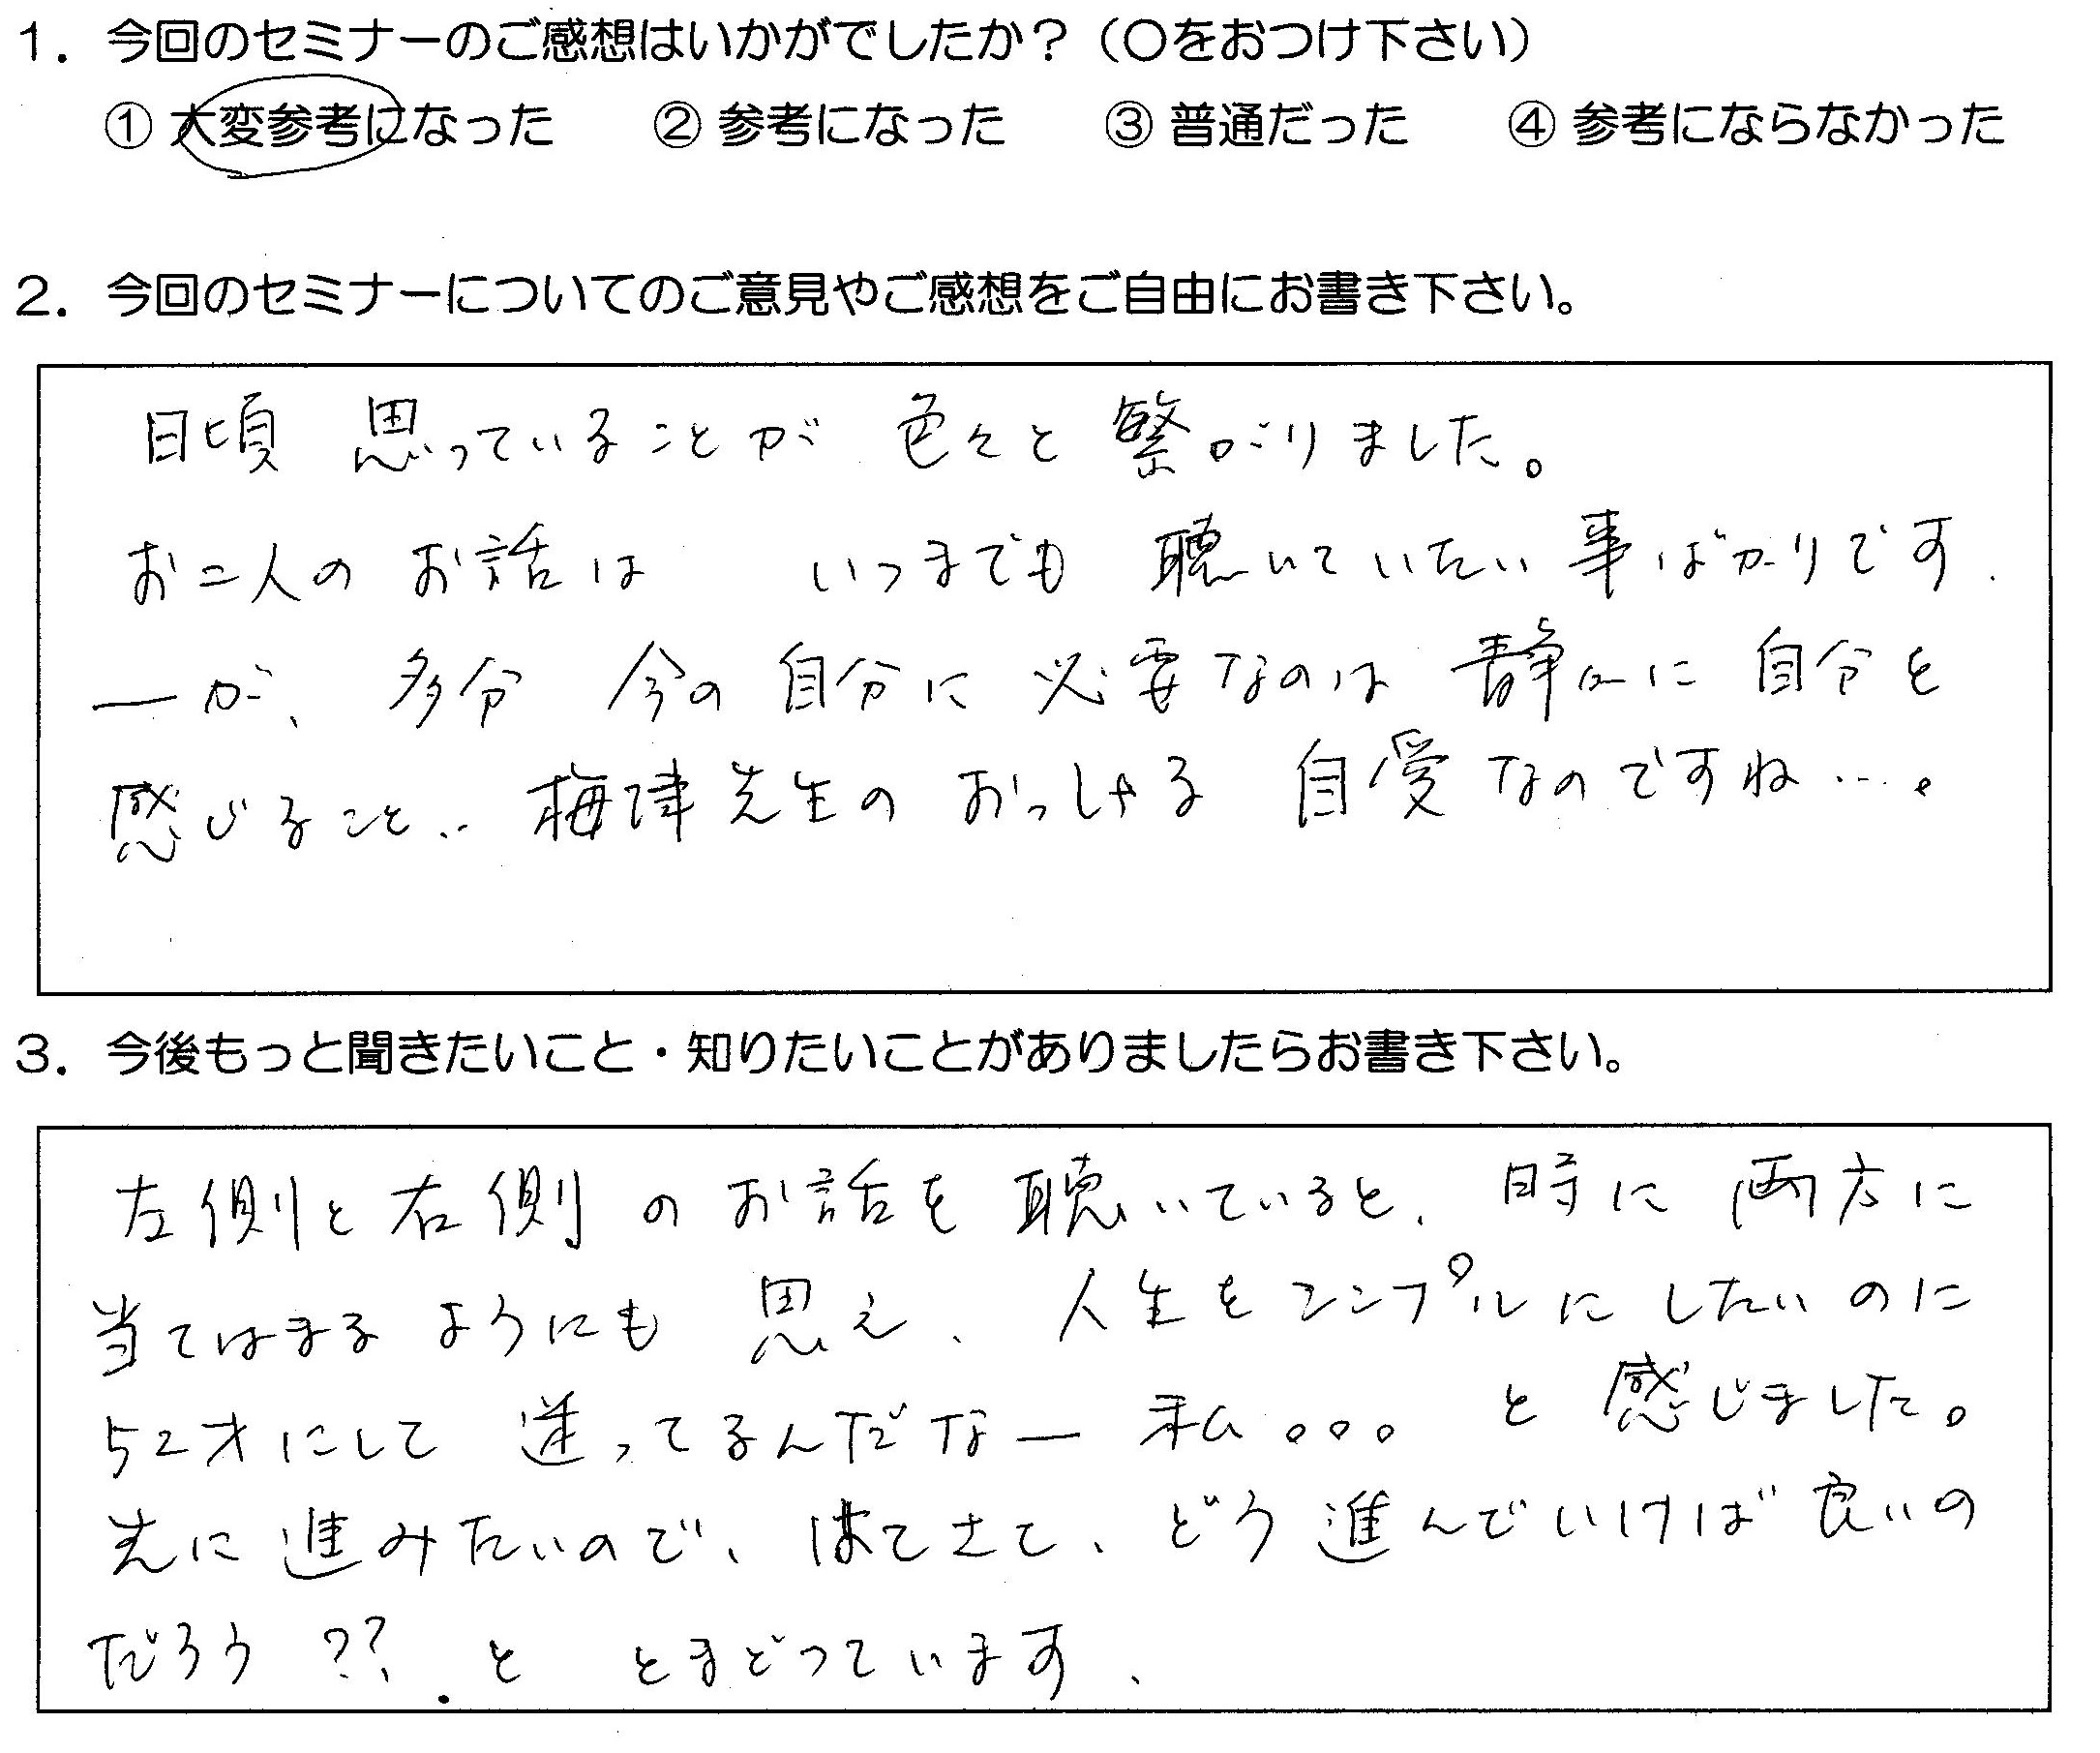 1. 今回のセミナーのご感想はいかがでしたか？（〇をおつけ下さい）
① 大変参考になった ② 参考になった ③ 普通だった ④ 参考にならなかった
2. 今回のセミナーについてのご意見やご感想をご自由にお書き下さい。
日頃 思っていることが 色々と 繋がりました。
お二人の お話は いつまでも 聴いていたい 事ばかりです.
ーが、多分 今の 自分に 必要なのは 静かに 自分を
感じること.. 梅津先生の おっしゃる 自愛なのですね…。
3. 今後もっと聞きたいこと・知りたいことがありましたらお書き下さい。
左側と右側 の お話を 聴いていると、時に 両方に
当てはまる ようにも 思え、人生を シンプルに したい のに
52才にして 迷ってるんだなー 私。。。 と 感じました。
先に 進みたいので、はてさて、どう 進んでいけば 良いの
だろう ??. と とまどっています、